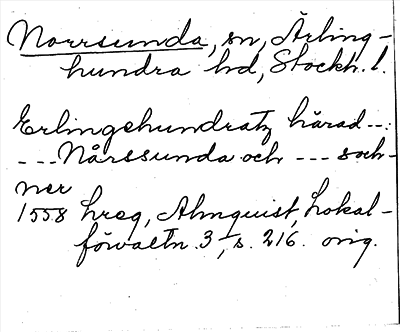 Norrsunda, sn, Ärling-
hundra hd, Stockh. l.
Erlingehundratz härad --:
--- Nårssunda och --- soch-
ner
1558 hreg, Almquist, Lokal-
förvaltn. 3, s. 216. orig.